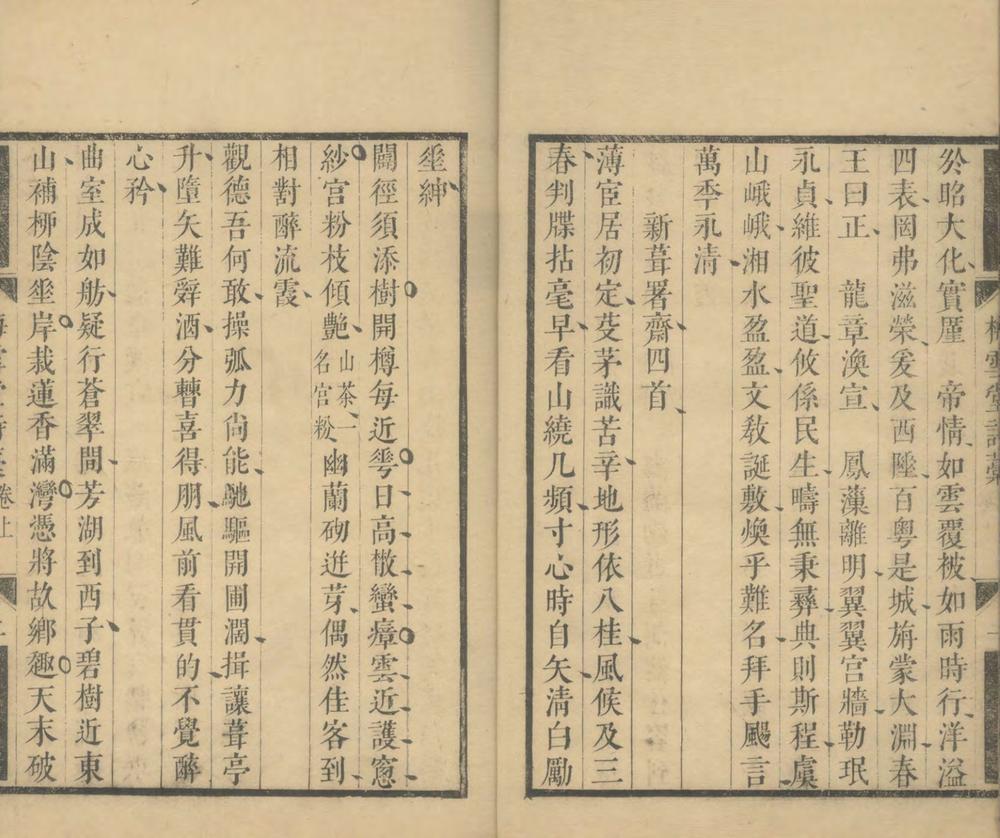 於昭大化實厪　帝情如雲覆被如雨時行洋溢
四表罔弗滋榮爰及西陲百粤是城旃蒙大淵春
王曰正　龍章渙宣　鳳藻離明翼翼宮牆勒珉
永貞維彼聖道攸係民生疇無秉彝典則斯程虞
山峨峨湘水盈盈文敎誕敷煥乎難名拜手颺言
萬季永淸
新葺署齋四首
薄宦居初定茇茅識苦辛地形依八桂風候及三
春判牒拈毫早看山繞几頻寸心時自矢淸白勵
垂紳
闢徑須添樹開樽每近夸日高散蠻瘴雲近護窻
紗宮粉枝傾艷山茶一名宮粉幽蘭砌迸芽偶然佳客到
相對醉流霞
觀德吾何敢操弧力尙能馳驅開圃濶揖讓葺亭
升墮矢難辤酒分曹喜得朋風前看貫的不覺醉
心矜
曲室成如舫疑行蒼翠間芳湖到西子碧樹近東
山補柳陰垂岸栽蓮香滿灣憑將故鄉趣天末破
卷上